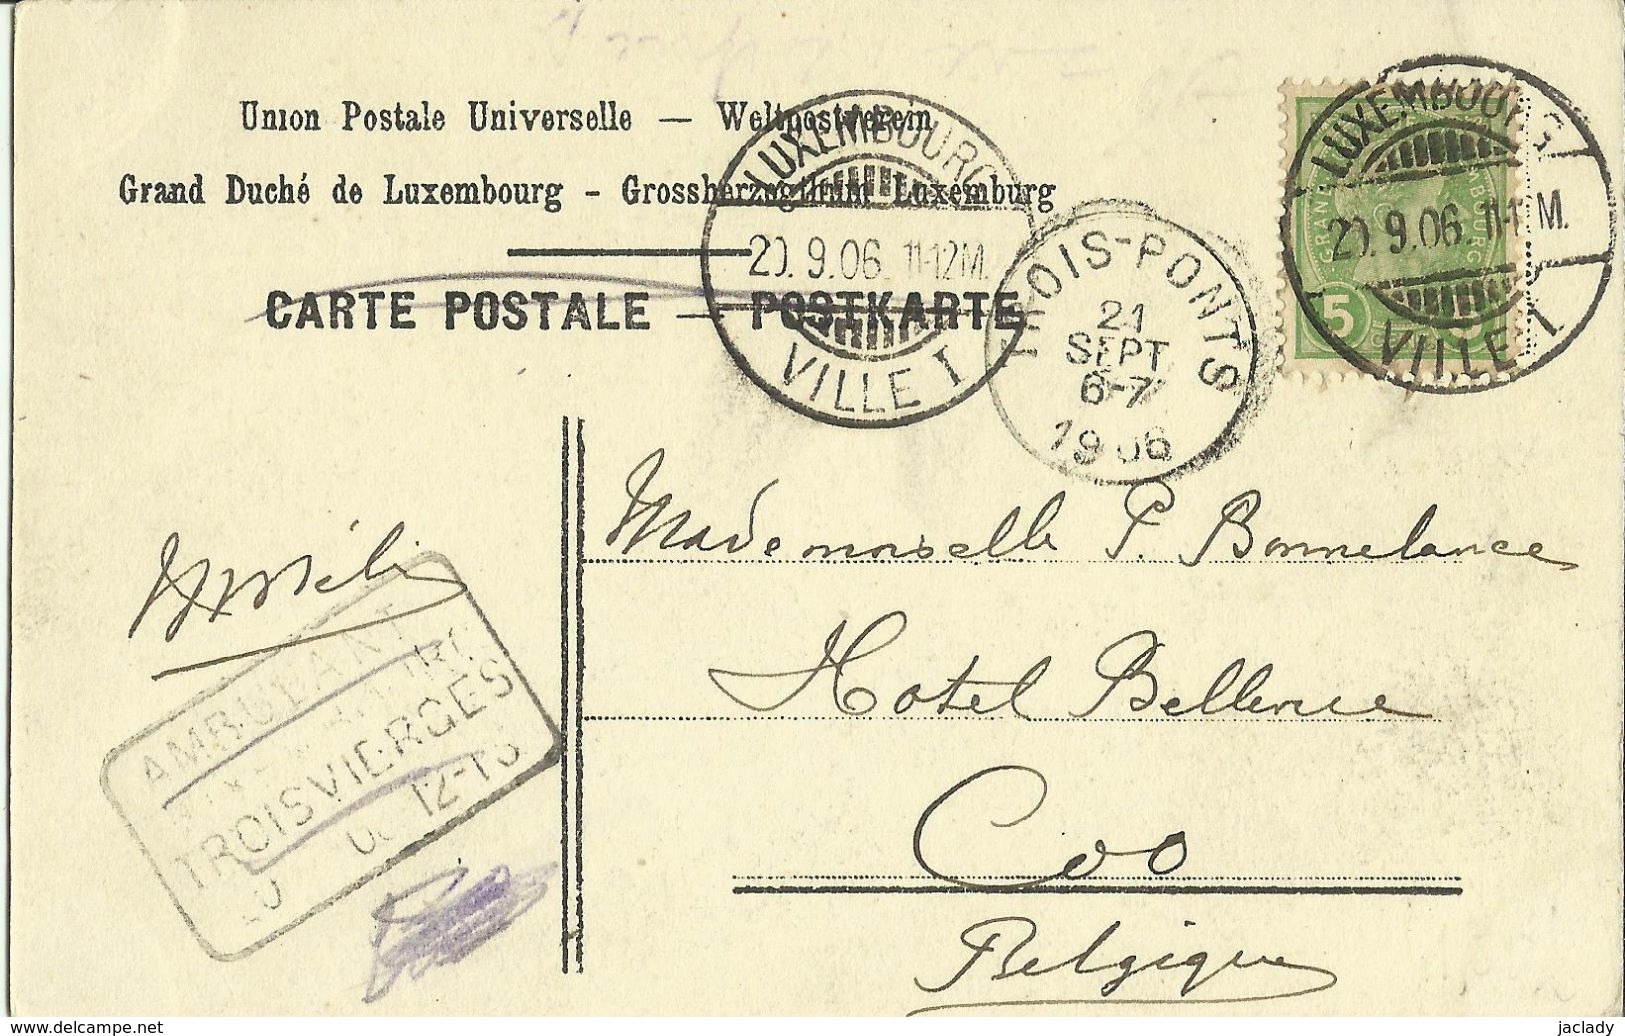 Union Postale Universelle — Weltpostverein
Grand Duché de Luxembourg - Grossherzogthum Luxemburg
CARTE POSTALE — POSTKARTE
LUXEMBOURG
20.9.06. 11-12M.
VILLE I
TROIS-PONTS
21
SEPT
6-7
1906
LUXEMBOURG
20.9.06. 11-12M.
VILLE I
5
Mademoiselle P. Bonnelance
Hotel Bellevue
Coo
Belgique
AMBULANT
TROISVIERGES
12-13
delcampe.net
jaclady